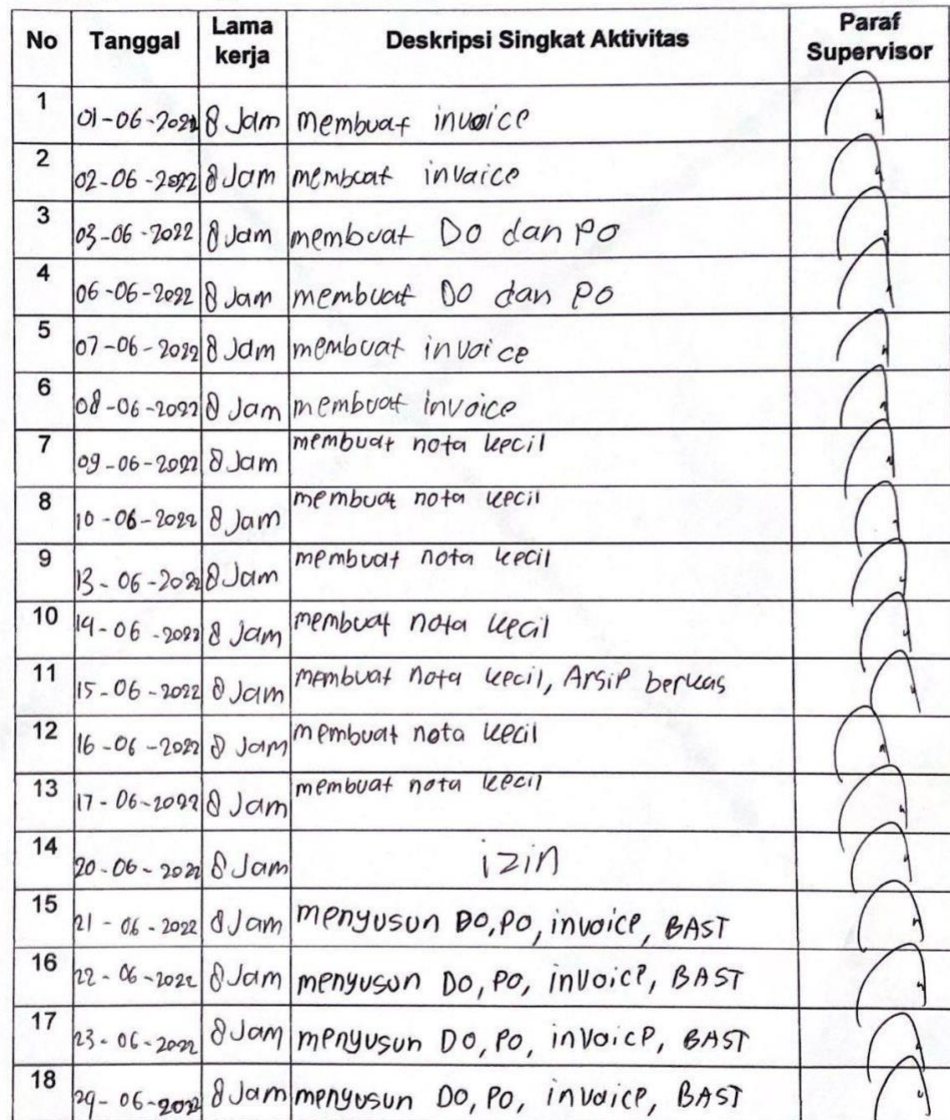 No Tanggal Lama kerja Deskripsi Singkat Aktivitas Paraf Supervisor
1 01-06-2022 8 Jam membuat invoice
2 02-06-2022 8 Jam membuat invoice
3 03-06-2022 8 Jam membuat DO dan PO
4 06-06-2022 8 Jam membuat DO dan PO
5 07-06-2022 8 Jam membuat invoice
6 08-06-2022 8 Jam membuat invoice
7 09-06-2022 8 Jam membuat nota kecil
8 10-06-2022 8 Jam membuat nota kecil
9 13-06-2022 8 Jam membuat nota kecil
10 14-06-2022 8 Jam membuat nota kecil
11 15-06-2022 8 Jam membuat nota kecil, Arsip berkas
12 16-06-2022 8 Jam membuat nota kecil
13 17-06-2022 8 Jam membuat nota kecil
14 20-06-2022 8 Jam izin
15 21-06-2022 8 Jam menyusun DO, PO, invoice, BAST
16 22-06-2022 8 Jam menyusun DO, PO, invoice, BAST
17 23-06-2022 8 Jam menyusun DO, PO, invoice, BAST
18 24-06-2022 8 Jam menyusun DO, PO, invoice, BAST